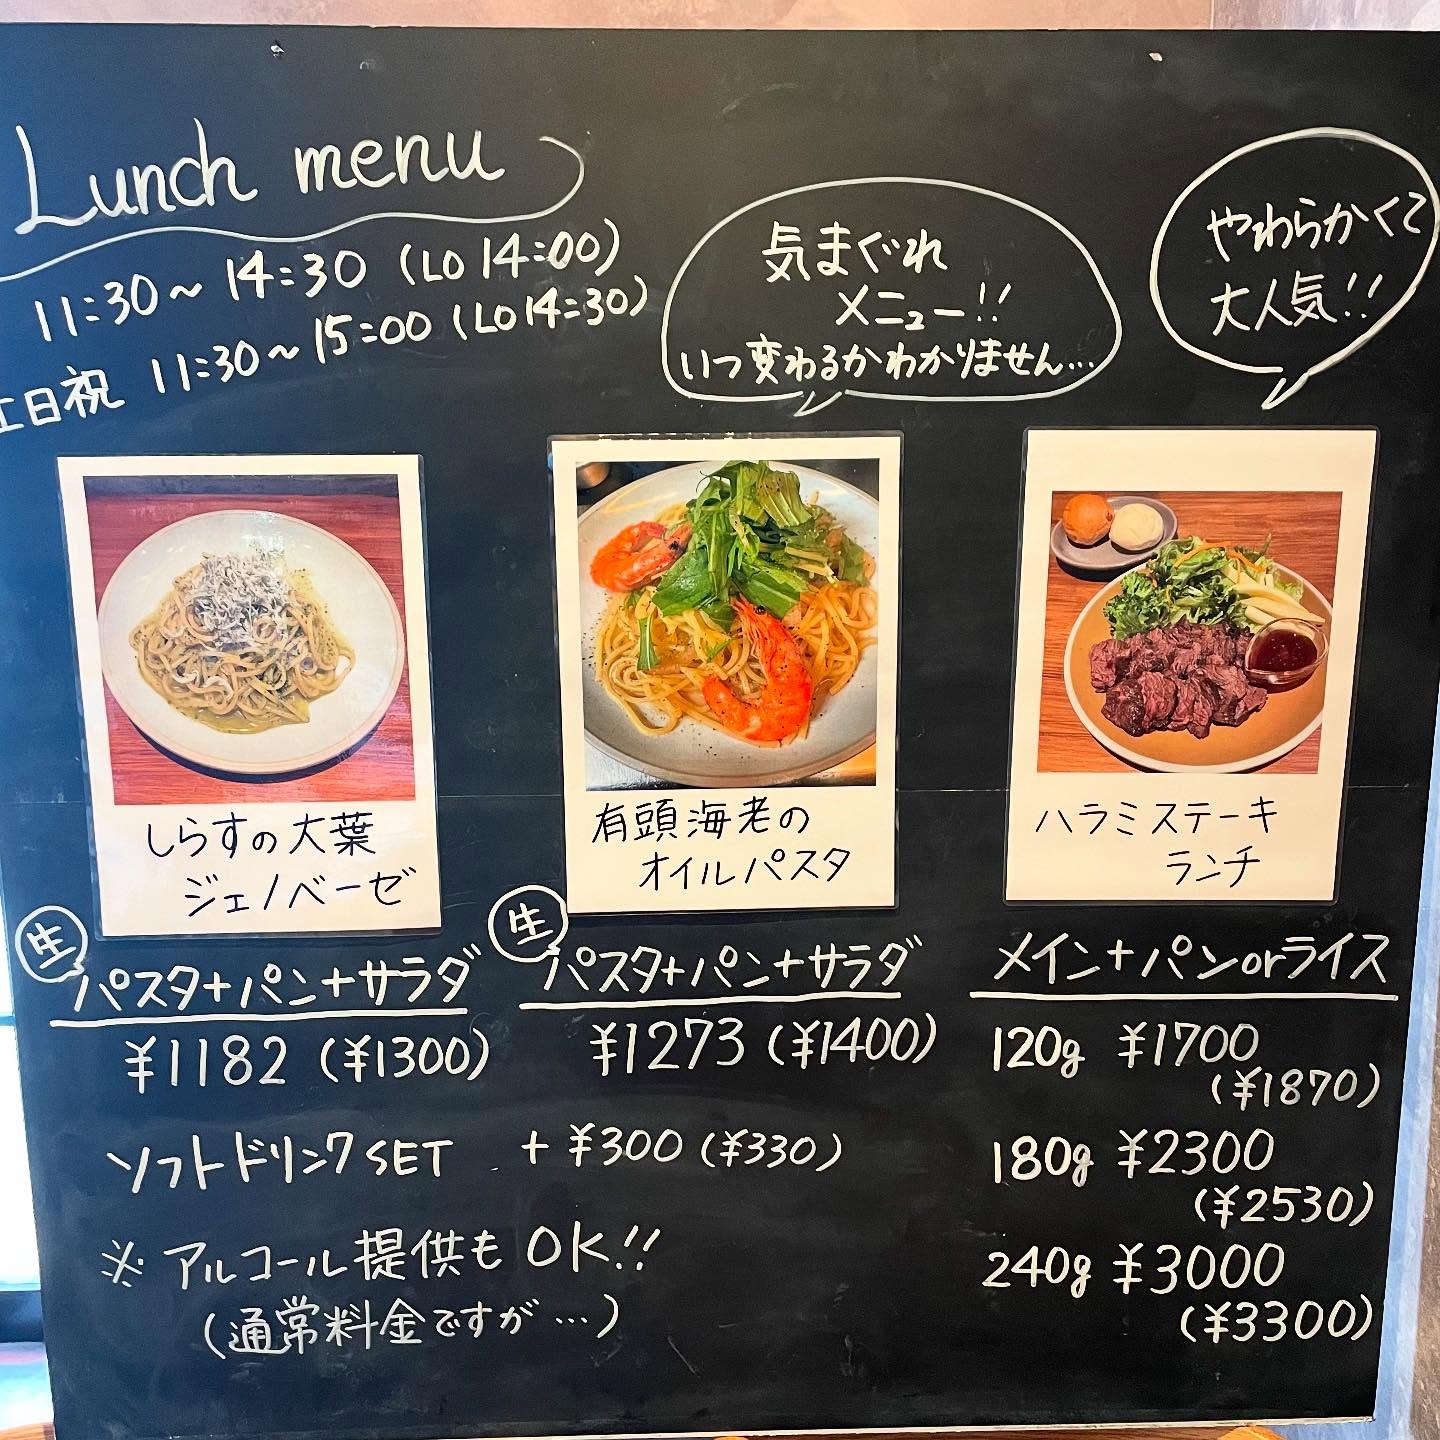 Lunch menu
11:30～14:30 (LO 14:00)
土日祝 11:30～15:00 (LO 14:30)
気まぐれ
メニュー!!
いつ変わるかわかりません…
やわらかくて
大人気!!
しらすの大葉
ジェノベーゼ
生
パスタ+パン+サラダ
¥1182 (¥1300)
有頭海老の
オイルパスタ
生
パスタ+パン+サラダ
¥1273 (¥1400)
ハラミステーキ
ランチ
メイン+パンorライス
120g ¥1700
(¥1870)
180g ¥2300
(¥2530)
240g ¥3000
(¥3300)
ソフトドリンクSET +¥300 (¥330)
※ アルコール提供も OK!!
(通常料金ですが…)